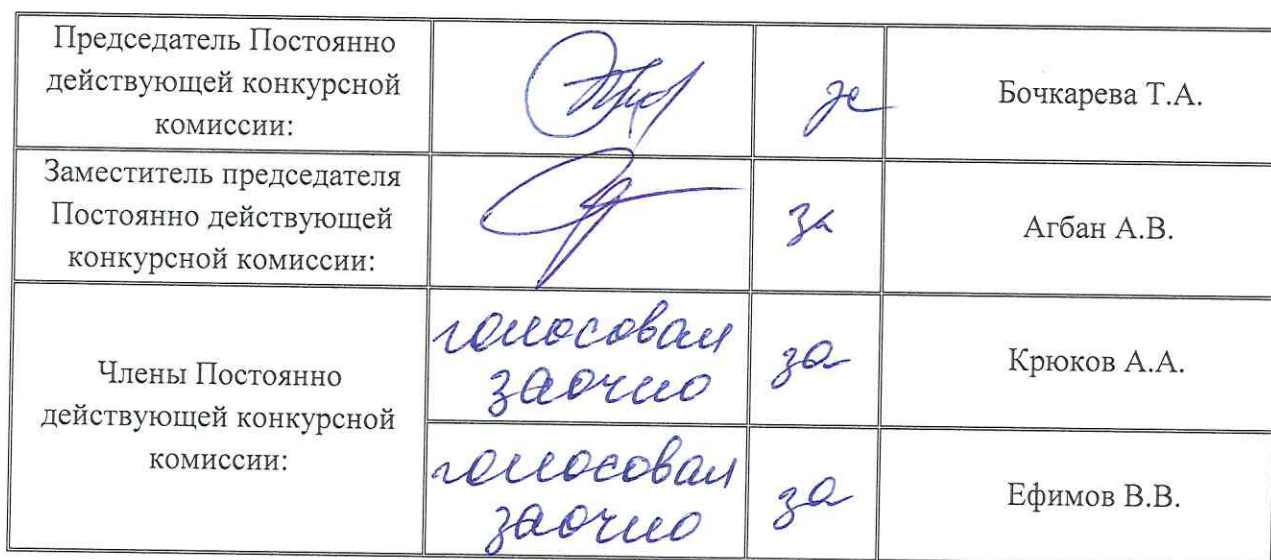 Председатель Постоянно
действующей конкурсной
комиссии:
за
Бочкарева Т.А.
Заместитель председателя
Постоянно действующей
конкурсной комиссии:
за
Агбан А.В.
Члены Постоянно
действующей конкурсной
комиссии:
голосовал
заочно
за
Крюков А.А.
голосовал
заочно
за
Ефимов В.В.